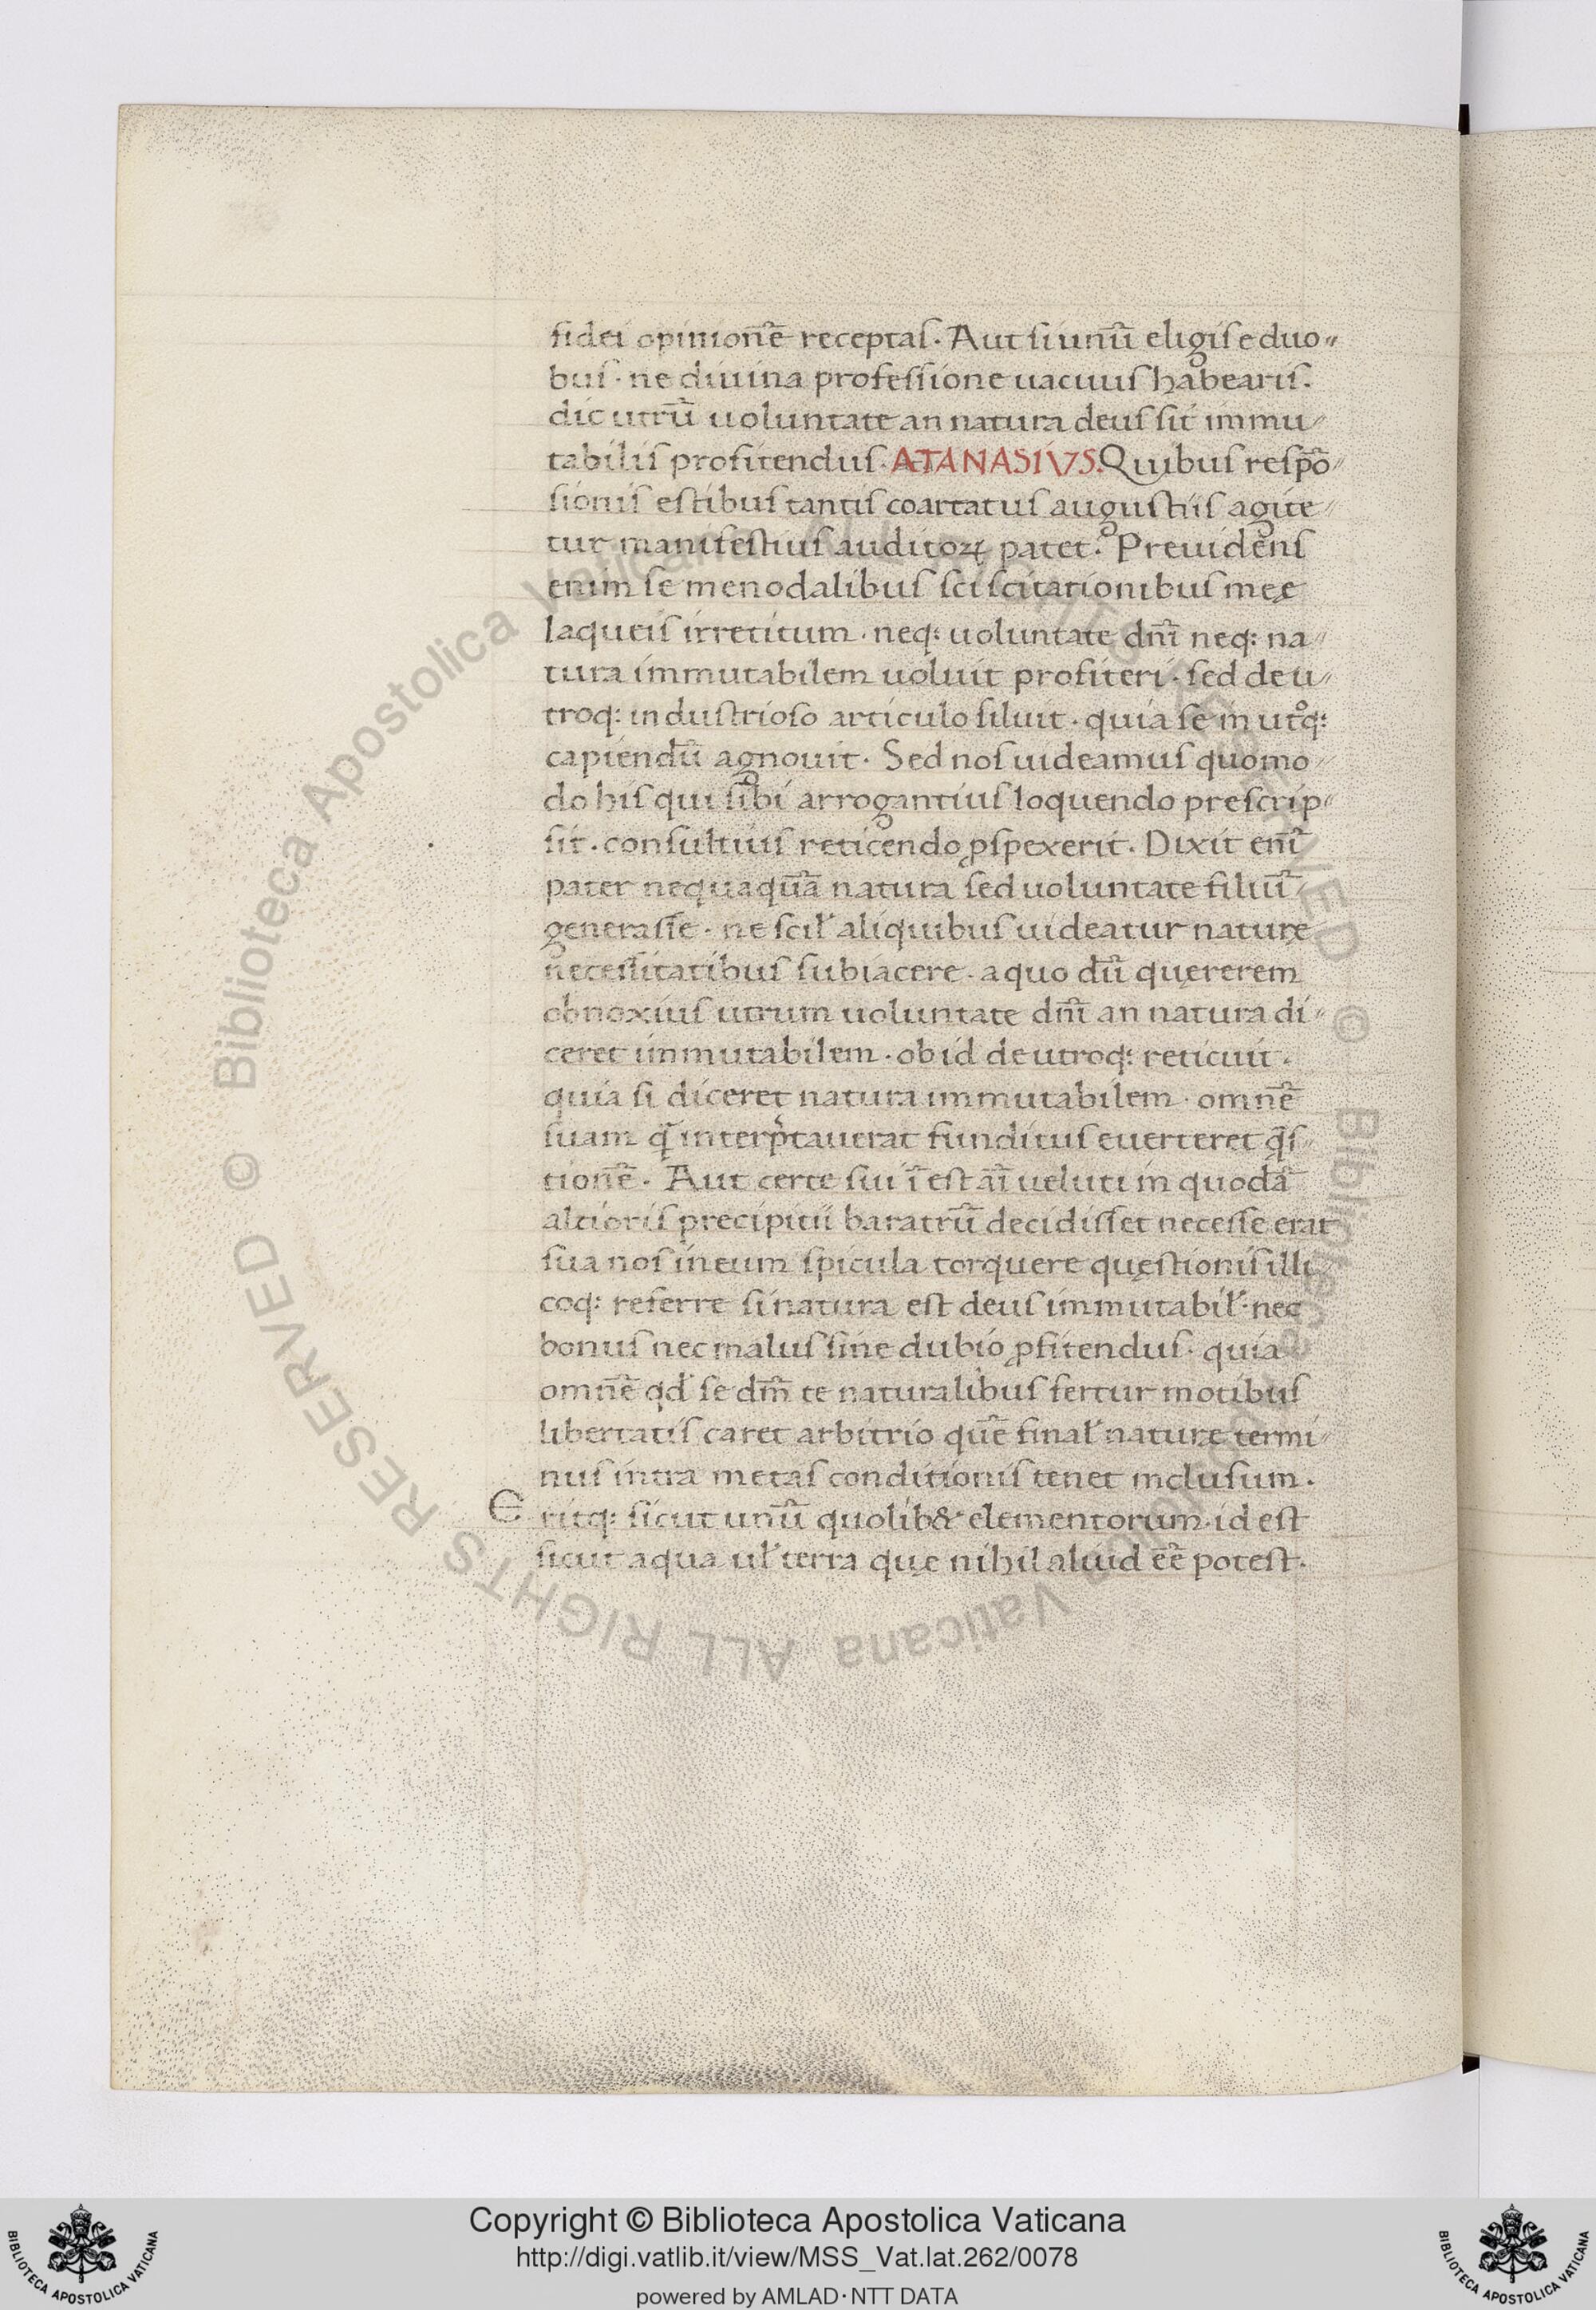 fidei opinionē receptas. Aut si unū eligis e duo〃
bus · ne diuina professione uacuus habearis.
dic utrū uoluntate an natura deus sit immu〃
tabilis profitendus. ATANASIVS. Quibus respō〃
sionis estibus tantis coartatus augustiis agite〃
tur manifestius auditoꝝ patet. Preuidens
enim se menodalibus sciscitationibus meę
laqueis irretitum · neq: uoluntate dm̄ neq: na〃
tura immutabilem uoluit profiteri · sed de u〃
troq: industrioso articulo siluit · quia se in utͦq:
capiendū agnouit. Sed nos uideamus quomo〃
do his qui sibi arrogantius loquendo prescrip〃
sit · consultius reticendo ꝓspexerit. Dixit enī
pater nequaquā natura sed uoluntate filiū〃
generasse · ne scil̕ aliquibus uideatur naturę
necessitatibus subiacere · a quo dū quęrerem
obnoxius utrum uoluntate dm̄ an natura di〃
ceret immutabilem · ob id de utroq: reticuit.
quia si diceret natura immutabilem · omnē
suam q̄ interp̄tauerat funditus euerteret q̄s〃
tionē. Aut certe siu ī est aī ueluti in quodā
altioris precipitii baratrū decidisset necesse erat
sua nos in eum spicula torquere quęstionis illi〃
coq: referre si natura est deus immutabil̕ · nec
bonus nec malus sine dubio ꝓfitendus · quia
omnē qd̕ se dm̄ te naturalibus fertur motibus
libertatis caret arbitrio quē final̕ naturę termi〃
nus intra metas conditionis tenet inclusum.
E ritq: sicut unū quolib& elementorum · id est
sicut aqua ul̕ terra quę nihil aliud eē potest.
© Biblioteca Apostolica Vaticana ALL RIGHTS RESERVED © Biblioteca Apostolica Vaticana ALL RIGHTS RESERVED
Copyright © Biblioteca Apostolica Vaticana
http://digi.vatlib.it/view/MSS_Vat.lat.262/0078
powered by AMLAD·NTT DATA
BIBLIOTECA APOSTOLICA VATICANA
BIBLIOTECA APOSTOLICA VATICANA